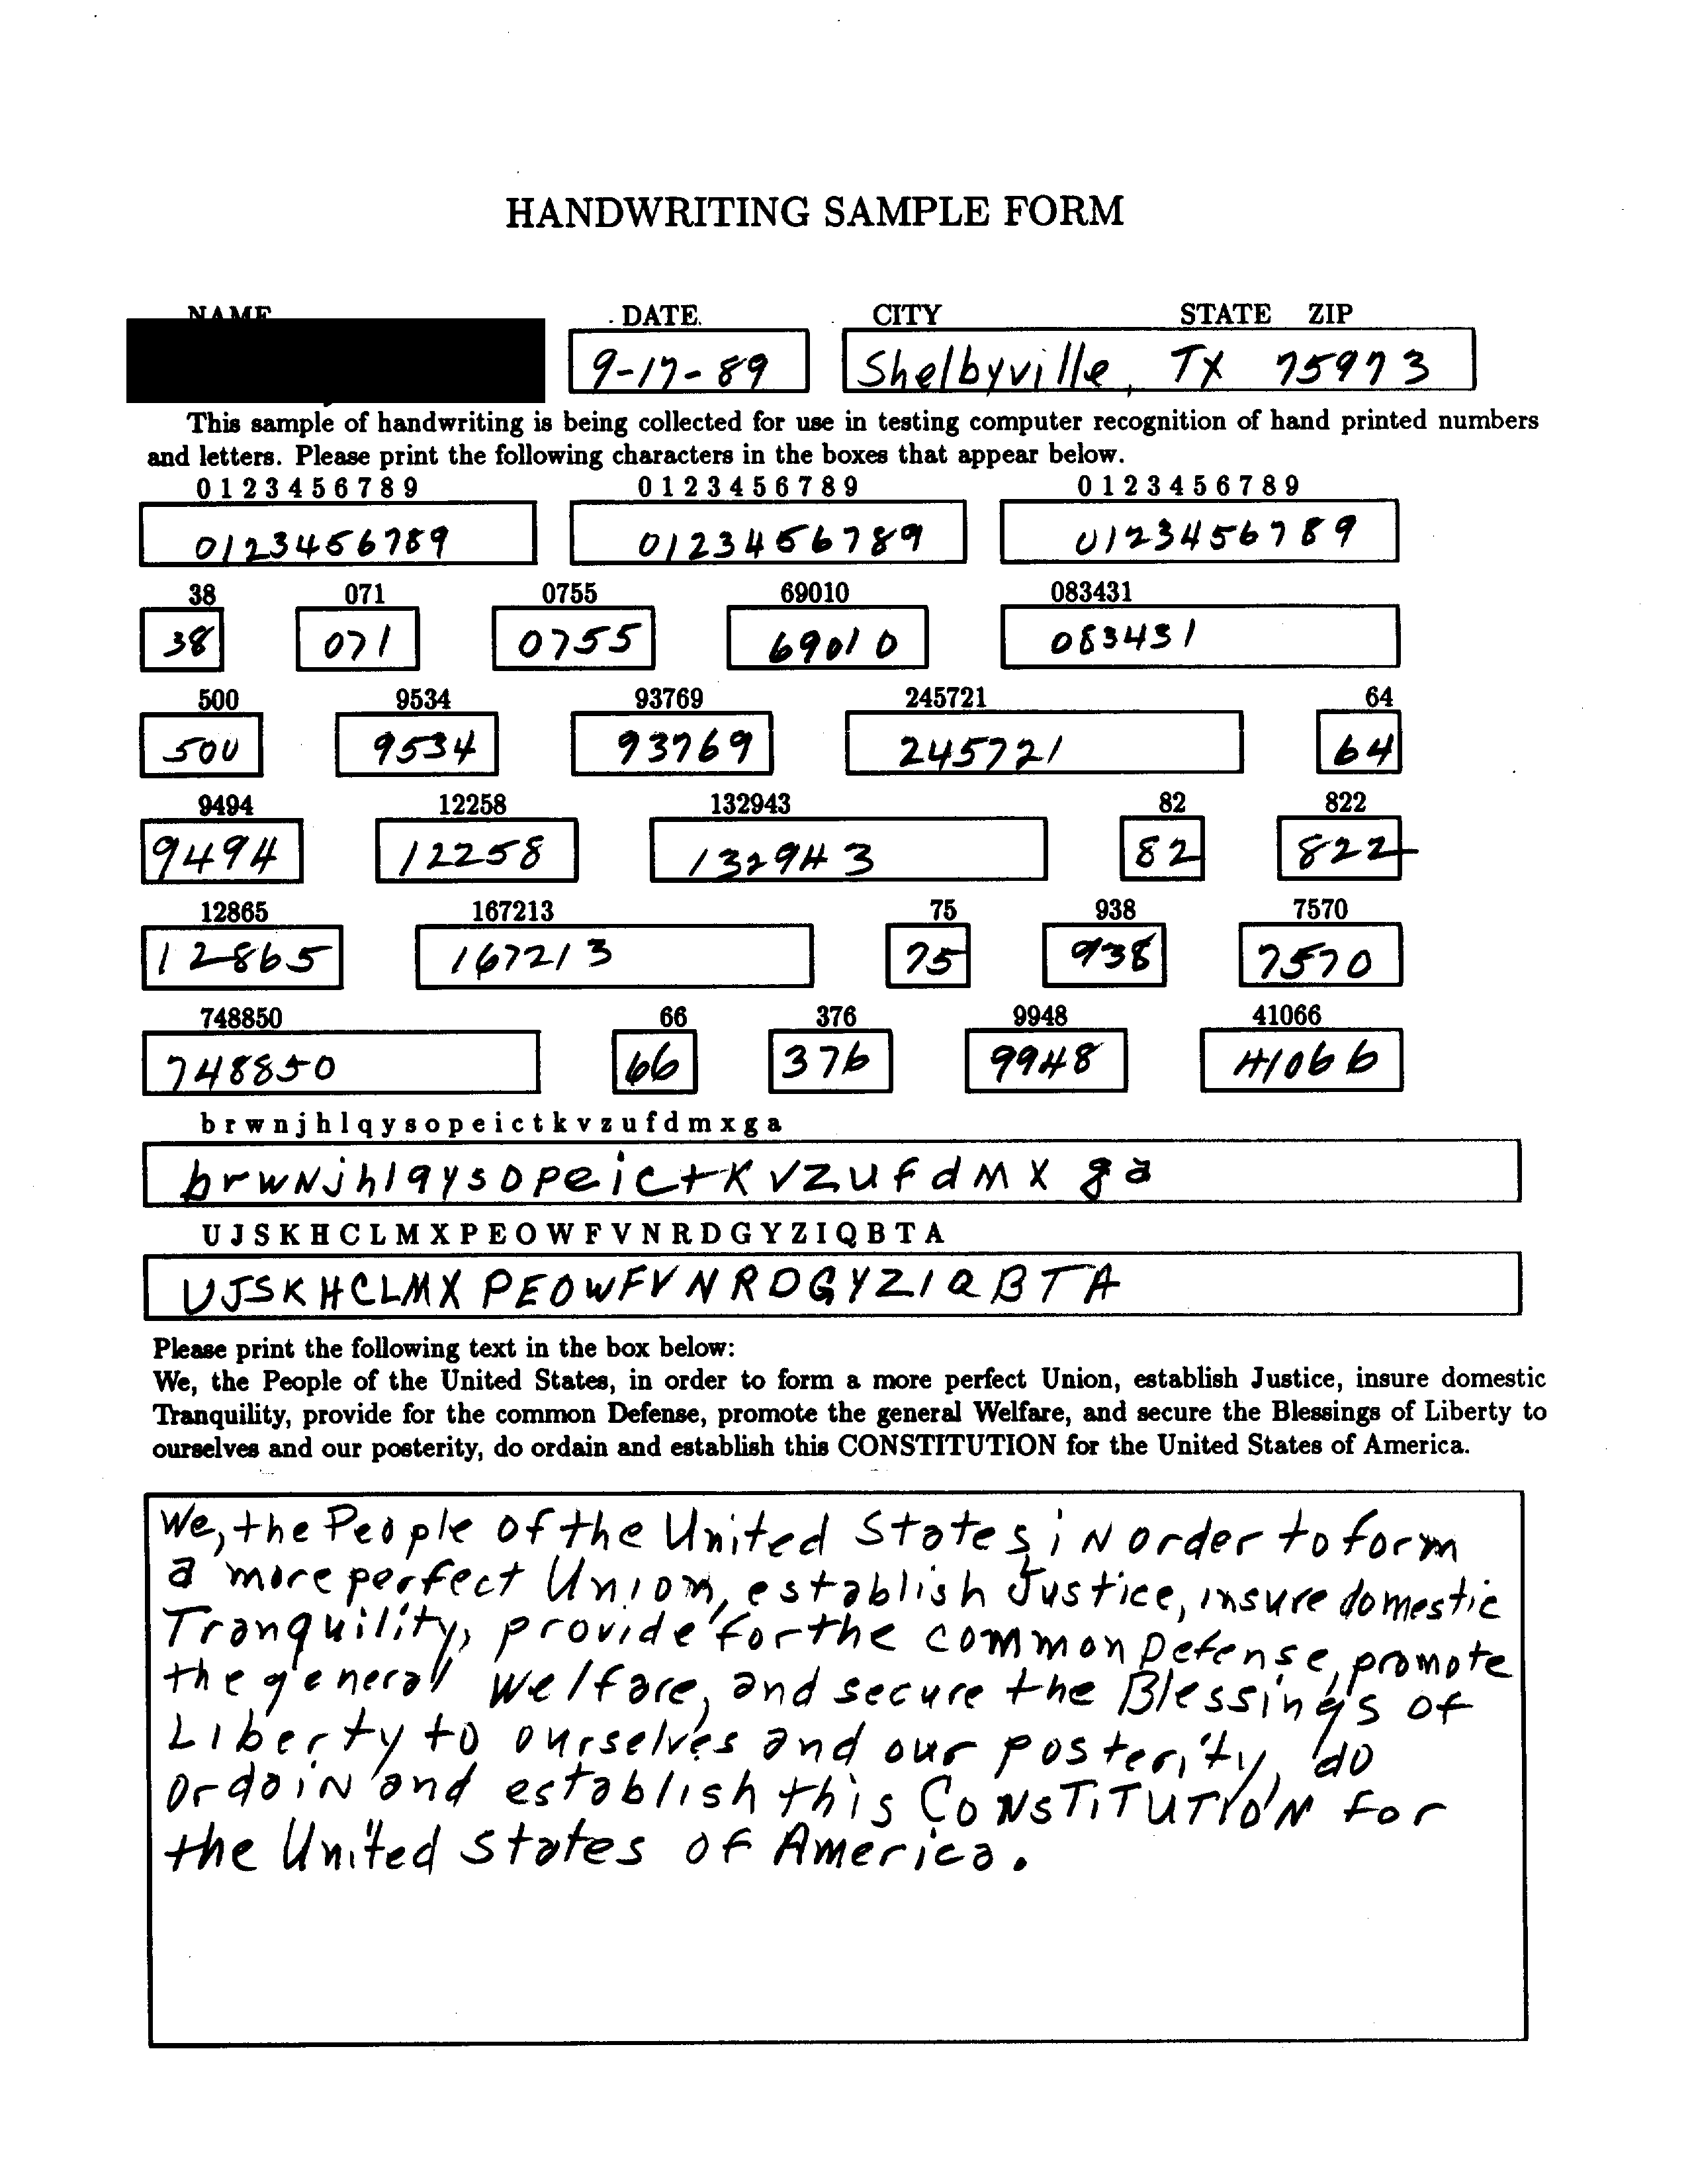 HANDWRITING SAMPLE FORM
NAME DATE CITY STATE ZIP
9-17-89 Shelbyville, TX 75973
This sample of handwriting is being collected for use in testing computer recognition of hand printed numbers
and letters. Please print the following characters in the boxes that appear below.
0 1 2 3 4 5 6 7 8 9 0 1 2 3 4 5 6 7 8 9 0 1 2 3 4 5 6 7 8 9
0123456789 0123456789 0123456789
38 071 0755 69010 083431
38 071 0755 69010 083431
500 9534 93769 245721 64
500 9534 93769 245721 64
9494 12258 132943 82 822
9494 12258 132943 82 822
12865 167213 75 938 7570
12865 167213 75 938 7570
748850 66 376 9948 41066
748850 66 376 9948 41066
b r w n j h l q y s o p e i c t k v z u f d m x g a
brwNjhlqysopeictKvzufdMx ga
U J S K H C L M X P E O W F V N R D G Y Z I Q B T A
UJSKHCLMX PEOWFVNRDGYZIQBTA
Please print the following text in the box below:
We, the People of the United States, in order to form a more perfect Union, establish Justice, insure domestic
Tranquility, provide for the common Defense, promote the general Welfare, and secure the Blessings of Liberty to
ourselves and our posterity, do ordain and establish this CONSTITUTION for the United States of America.
We, the People of the United States, iN order to form
a more perfect Union, establish Justice, insure domestic
Tranquility, provide for the common Defense, promote
the general Welfare, and secure the Blessings of
Liberty to ourselves and our posterity, do
ordaiN and establish this CoNsTiTUTIoN for
the United States of America.